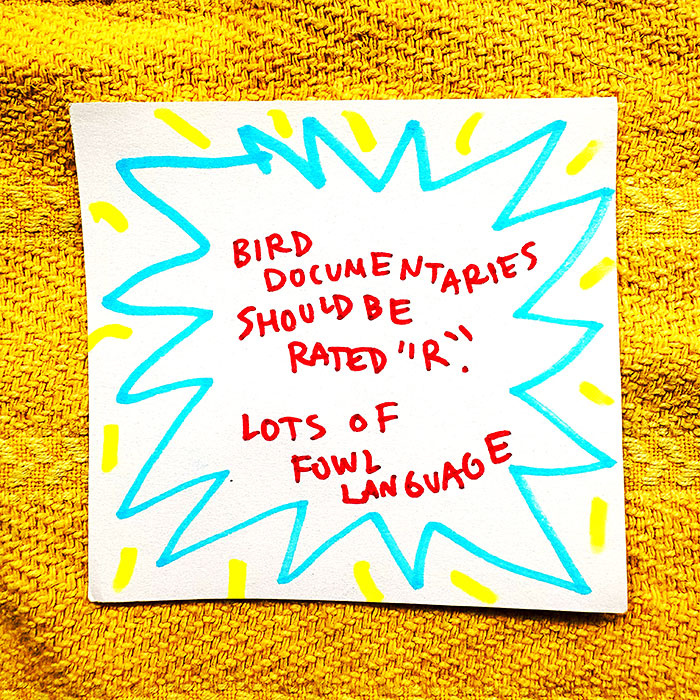 BIRD
DOCUMENTARIES
SHOULD BE
RATED "R".
LOTS OF
FOWL
LANGUAGE